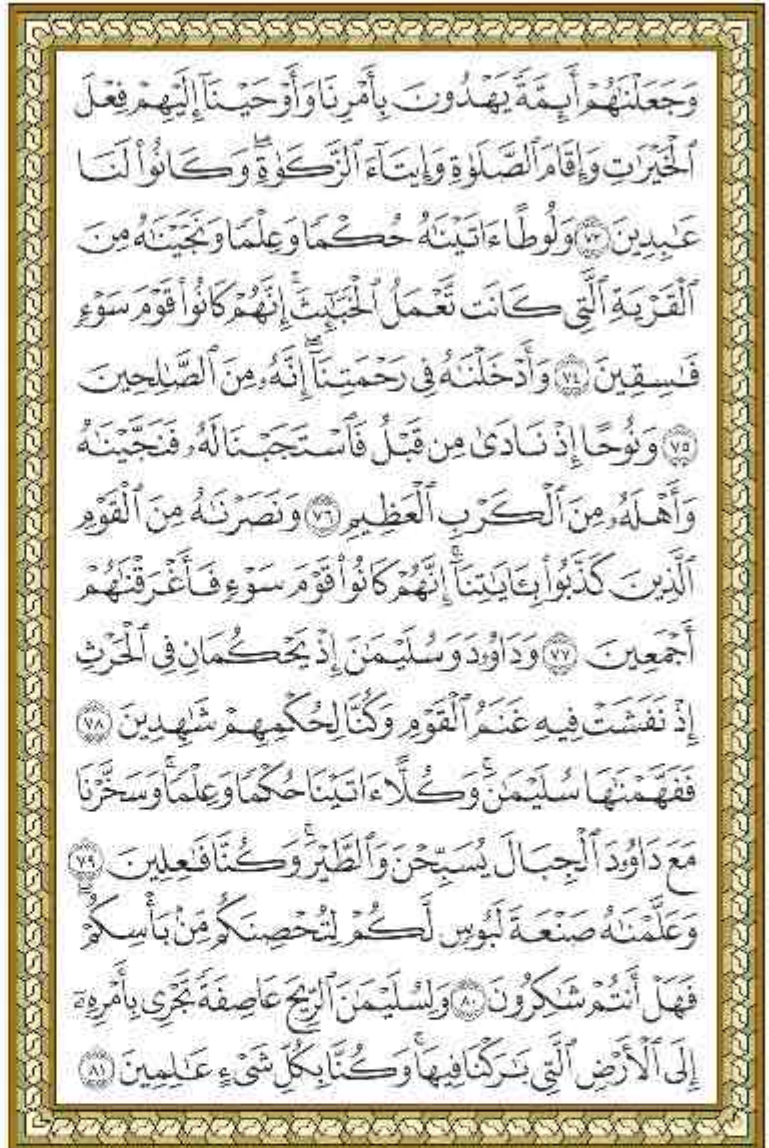 وَجَعَلْنَٰهُمْ أَئِمَّةً يَهْدُونَ بِأَمْرِنَا وَأَوْحَيْنَآ إِلَيْهِمْ فِعْلَ
ٱلْخَيْرَٰتِ وَإِقَامَ ٱلصَّلَوٰةِ وَإِيتَآءَ ٱلزَّكَوٰةِ ۖ وَكَانُوا۟ لَنَا
عَٰبِدِينَ ٧٣ وَلُوطًا ءَاتَيْنَٰهُ حُكْمًا وَعِلْمًا وَنَجَّيْنَٰهُ مِنَ
ٱلْقَرْيَةِ ٱلَّتِى كَانَت تَّعْمَلُ ٱلْخَبَٰٓئِثَ ۗ إِنَّهُمْ كَانُوا۟ قَوْمَ سَوْءٍ
فَٰسِقِينَ ٧٤ وَأَدْخَلْنَٰهُ فِى رَحْمَتِنَآ ۖ إِنَّهُۥ مِنَ ٱلصَّٰلِحِينَ
٧٥ وَنُوحًا إِذْ نَادَىٰ مِن قَبْلُ فَٱسْتَجَبْنَا لَهُۥ فَنَجَّيْنَٰهُ
وَأَهْلَهُۥ مِنَ ٱلْكَرْبِ ٱلْعَظِيمِ ٧٦ وَنَصَرْنَٰهُ مِنَ ٱلْقَوْمِ
ٱلَّذِينَ كَذَّبُوا۟ بِـَٔايَٰتِنَآ ۚ إِنَّهُمْ كَانُوا۟ قَوْمَ سَوْءٍ فَأَغْرَقْنَٰهُمْ
أَجْمَعِينَ ٧٧ وَدَاوُۥدَ وَسُلَيْمَٰنَ إِذْ يَحْكُمَانِ فِى ٱلْحَرْثِ
إِذْ نَفَشَتْ فِيهِ غَنَمُ ٱلْقَوْمِ وَكُنَّا لِحُكْمِهِمْ شَٰهِدِينَ ٧٨
فَفَهَّمْنَٰهَا سُلَيْمَٰنَ ۚ وَكُلًّا ءَاتَيْنَا حُكْمًا وَعِلْمًا ۚ وَسَخَّرْنَا
مَعَ دَاوُۥدَ ٱلْجِبَالَ يُسَبِّحْنَ وَٱلطَّيْرَ ۚ وَكُنَّا فَٰعِلِينَ ٧٩
وَعَلَّمْنَٰهُ صَنْعَةَ لَبُوسٍ لَّكُمْ لِتُحْصِنَكُم مِّنۢ بَأْسِكُمْ ۖ
فَهَلْ أَنتُمْ شَٰكِرُونَ ٨٠ وَلِسُلَيْمَٰنَ ٱلرِّيحَ عَاصِفَةً تَجْرِى بِأَمْرِهِۦٓ
إِلَى ٱلْأَرْضِ ٱلَّتِى بَٰرَكْنَا فِيهَا ۚ وَكُنَّا بِكُلِّ شَىْءٍ عَٰلِمِينَ ٨١